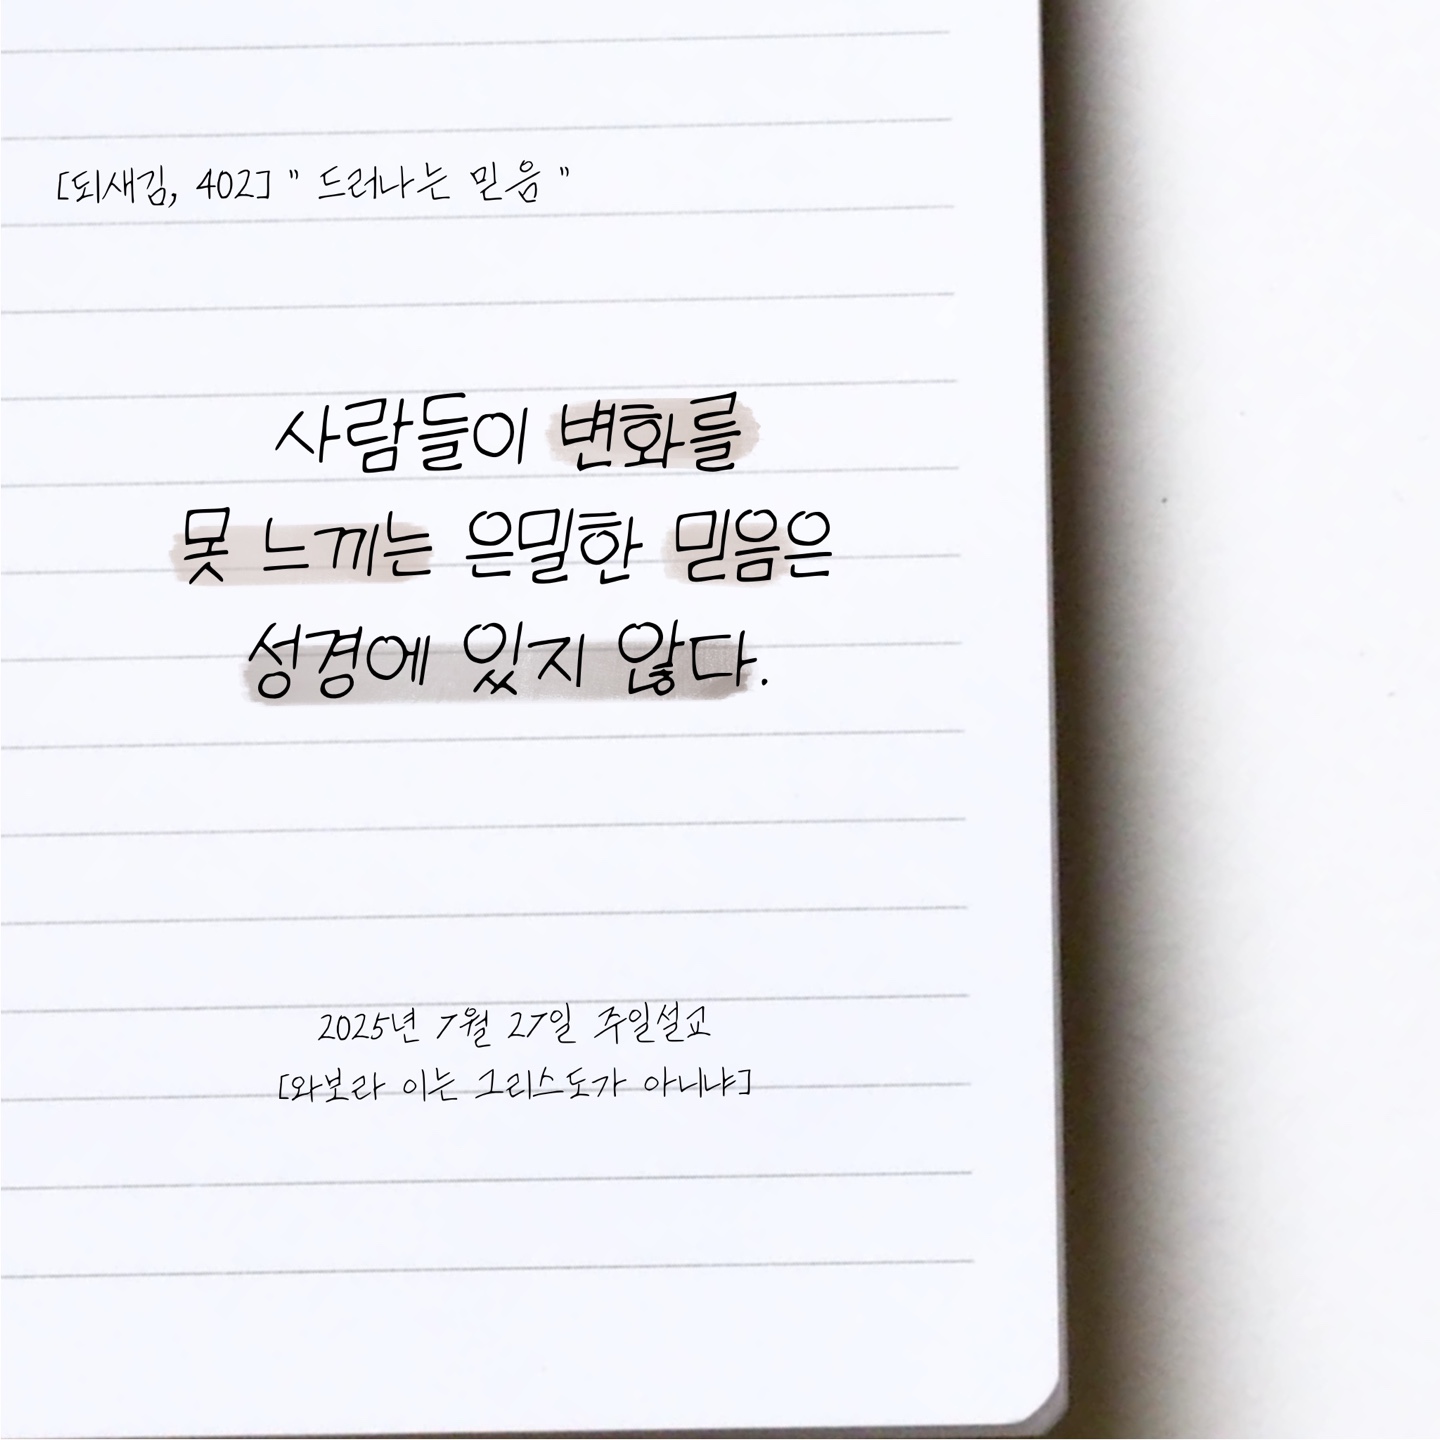 [되새김, 402] " 드러나는 믿음 "
사람들이 변화를
못 느끼는 은밀한 믿음은
성경에 있지 않다.
2025년 7월 27일 주일설교
[와보라 이는 그리스도가 아니냐]